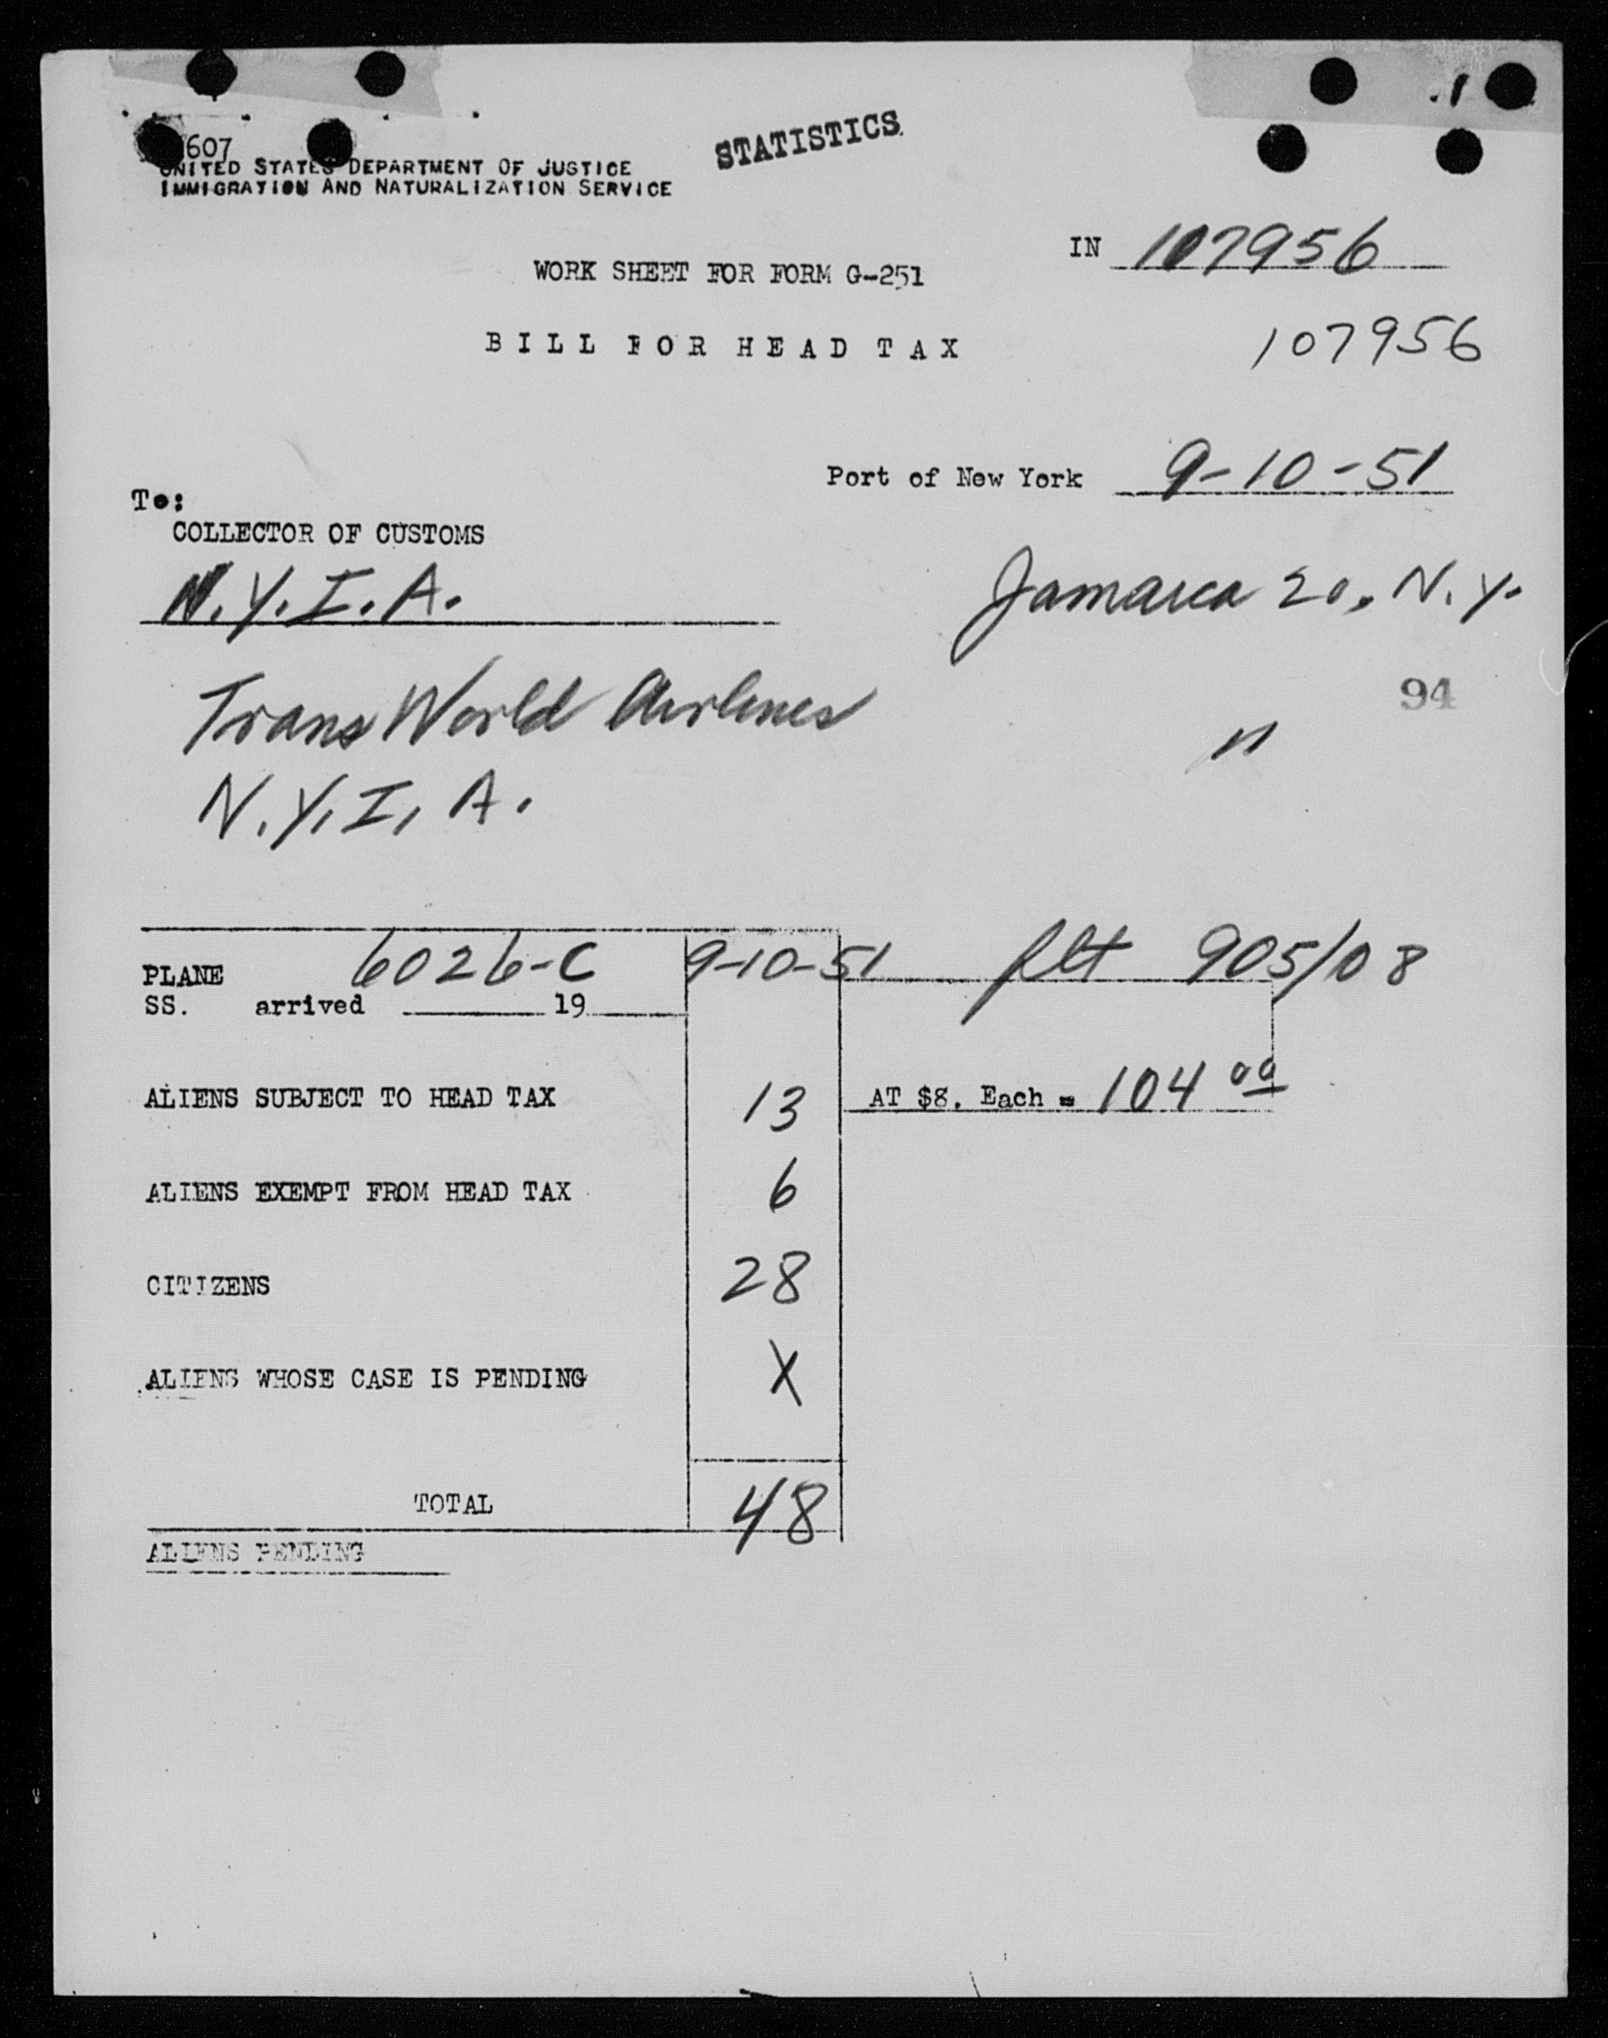 607
STATISTICS
UNITED STATES DEPARTMENT OF JUSTICE
IMMIGRATION AND NATURALIZATION SERVICE
IN 107956
WORK SHEET FOR FORM G-251
BILL FOR HEAD TAX
107956
Port of New York 9-10-51
To:
COLLECTOR OF CUSTOMS
N.Y.I.A. Jamaica 20, N.Y.
94
Trans World Airlines "
N.Y.I.A.
PLANE 6026-C 9-10-51 flt 905/08
SS. arrived 19
ALIENS SUBJECT TO HEAD TAX 13 AT $8. Each = 104 00
ALIENS EXEMPT FROM HEAD TAX 6
CITIZENS 28
ALIENS WHOSE CASE IS PENDING X
TOTAL 48
ALIENS PENDING